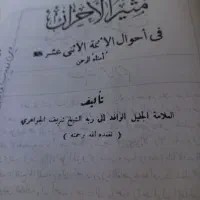 مثير الأحزان
في أحوال الأئمة الاثنى عشر
أمناء الرحمن
تأليف
العلامة الجليل الراقد الى ربه الشيخ شريف الجواهري
( تغمده الله برحمته )